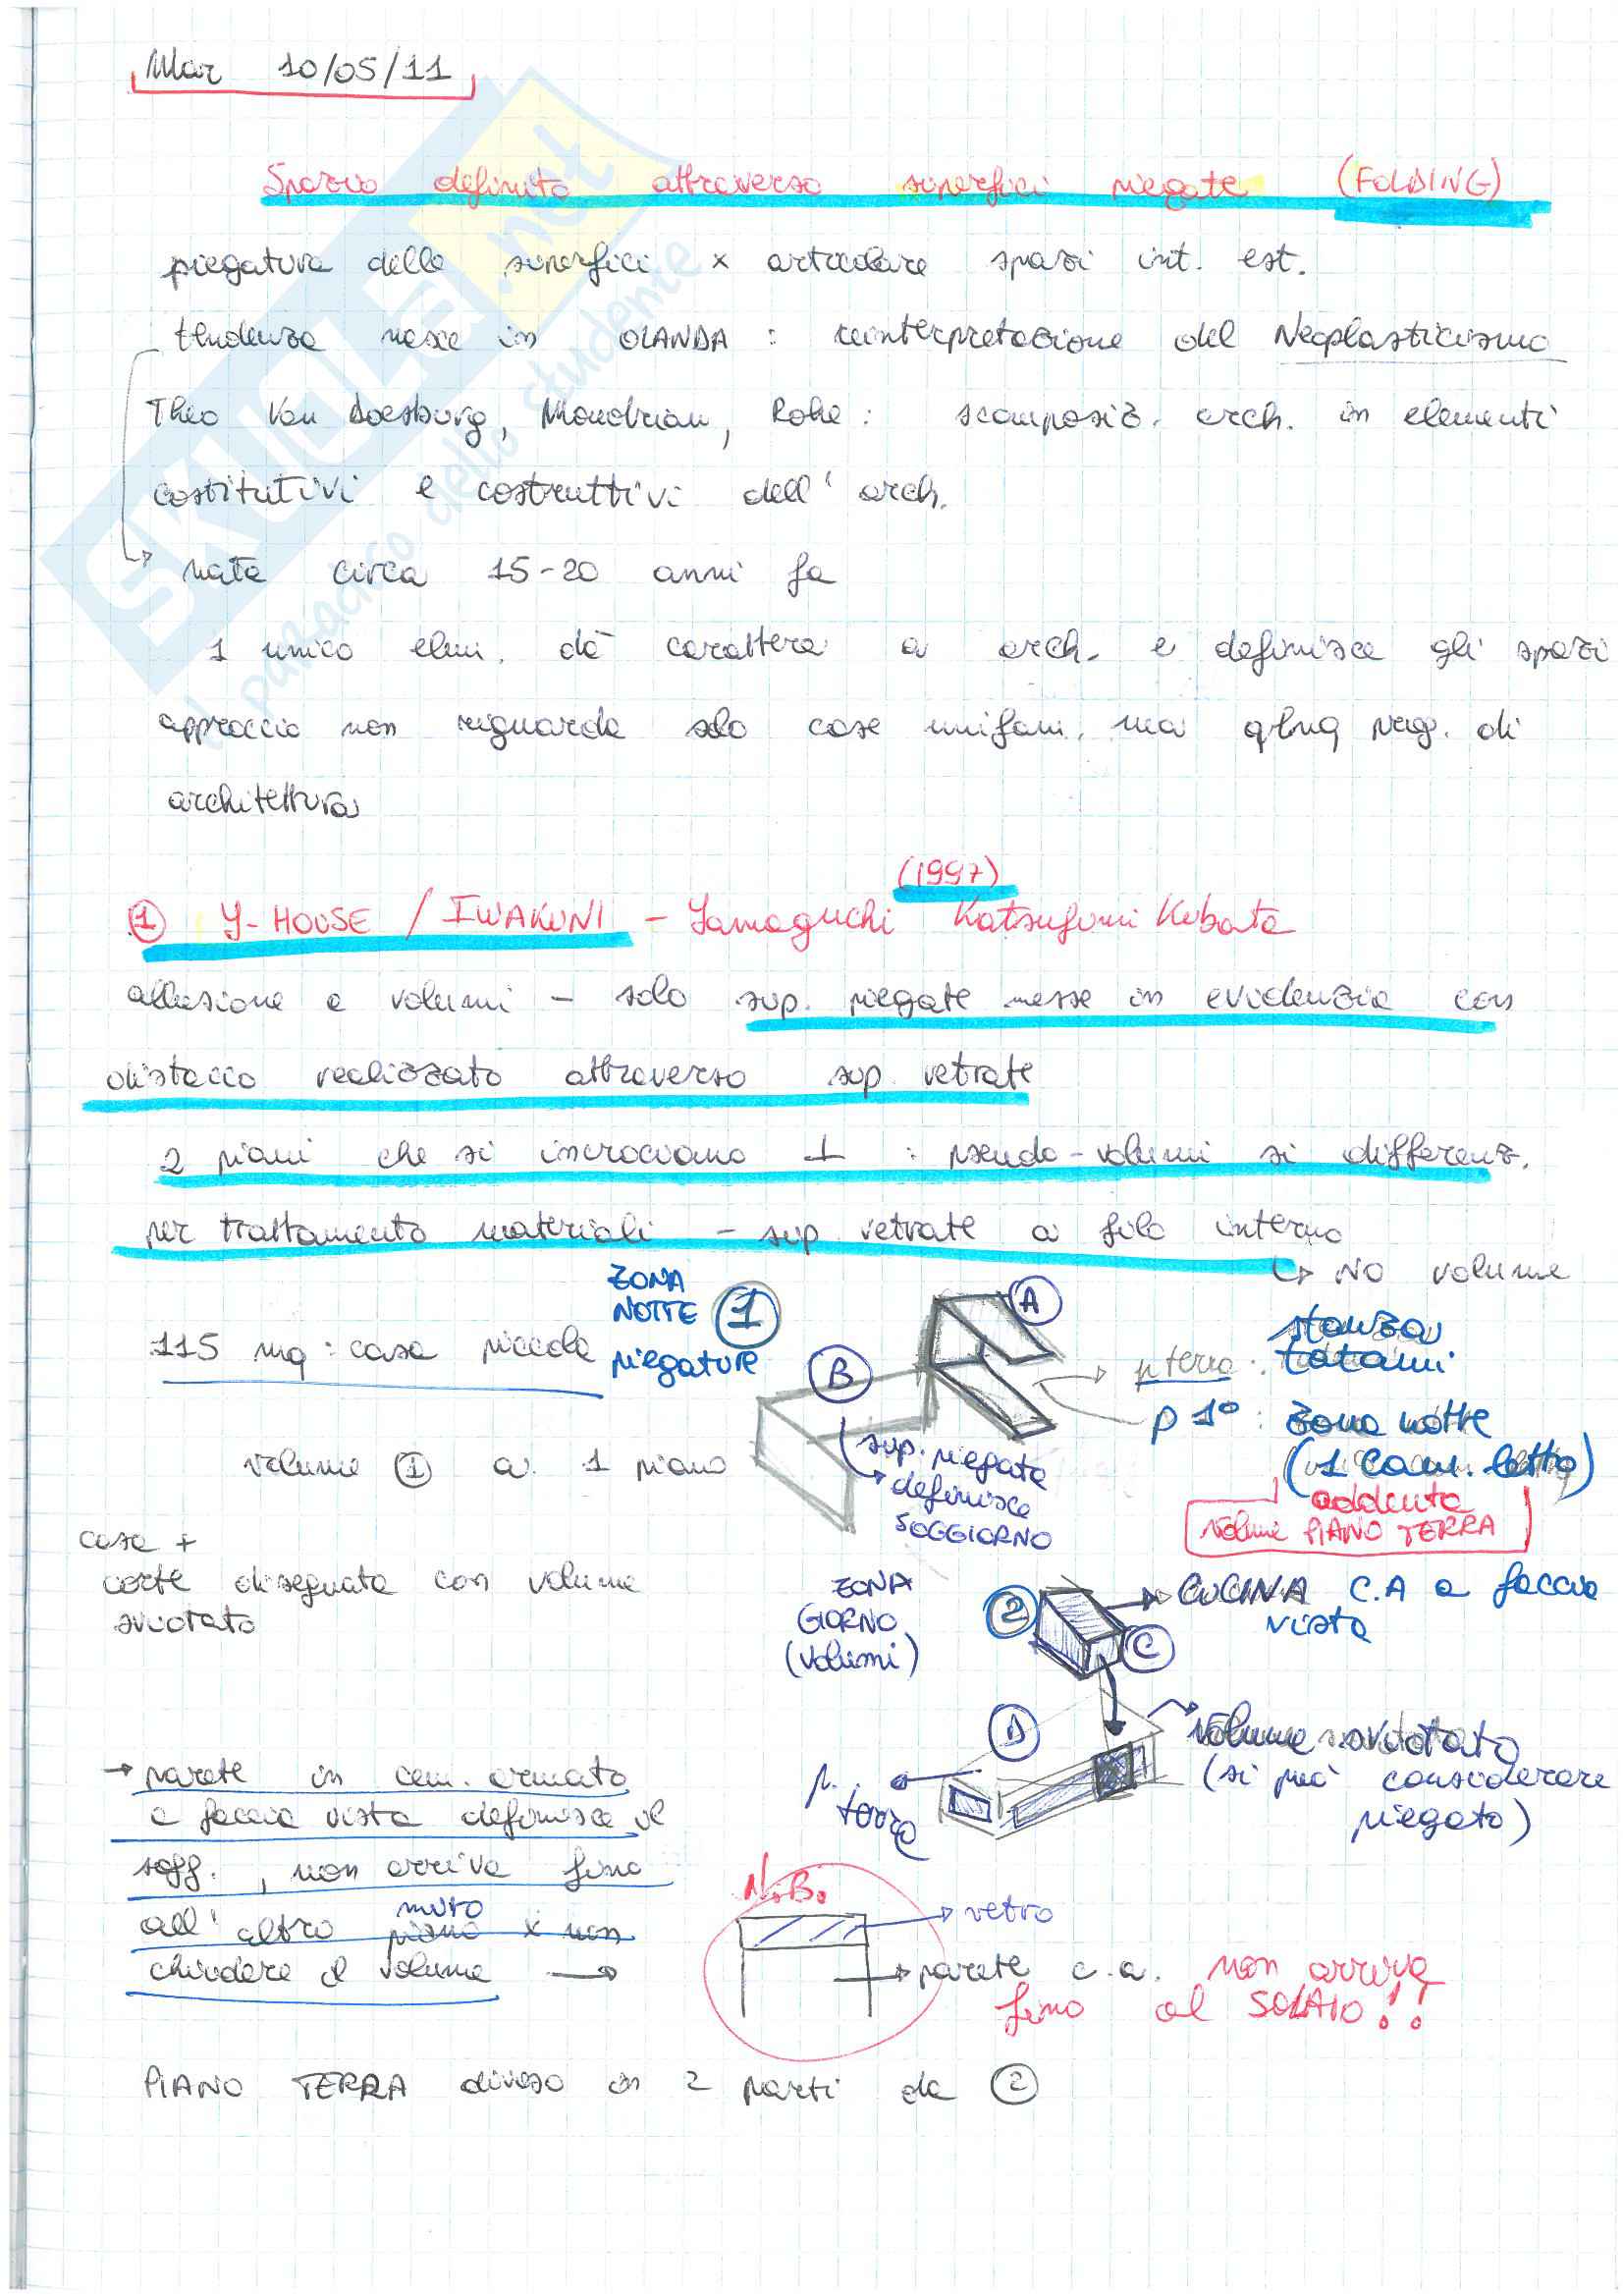 Mar 10/05/11
Spazio definito attraverso superfici piegate (FOLDING)
piegatura delle superfici x articolare spazi int. est.
tendenza nasce in OLANDA : reinterpretazione del Neoplasticismo
Theo Van Doesburg, Mondrian, Rohe : scomposiz. arch. in elementi
costitutivi e costruttivi dell' arch.
nata circa 15-20 anni fa
1 unico elem. dà carattere a arch. e definisce gli spazi
approccio non riguarda solo case unifam. ma qlnq prog. di
architettura
(1997)
① Y-HOUSE / IWAKUNI - Yamaguchi Katsufumi Kubota
allusione a volumi - solo sup. piegate messe in evidenzia con
distacco realizzato attraverso sup. vetrate
2 piani che si incrociano ⊥ : pseudo-volumi si differenz.
per trattamento materiali - sup vetrate a filo interno
↳ NO volume
115 mq : casa piccola
ZONA
NOTTE ①
piegature
A
B
p terra : stanza
tatami
p 1° : zona notte
(1 cam. letto)
addenta
volume PIANO TERRA
volume ① a 1 piano
sup. piegata
definisce
SOGGIORNO
casa +
corte disegnata con volume
svuotato
ZONA
GIORNO
(volumi)
②
C
CUCINA C.A a faccia
vista
D
volume svuotato
(si può considerare
piegato)
p.
terra
→ parete in cem. armato
a faccia vista definisce il
sogg. , non arriva fino
all' altro piano x non
muro
chiudere il volume →
N.B.
vetro
parete c.a. non arriva
fino al SOLAIO!!
PIANO TERRA diviso in 2 parti da ②
SKUOLA.net
il paradiso dello studente